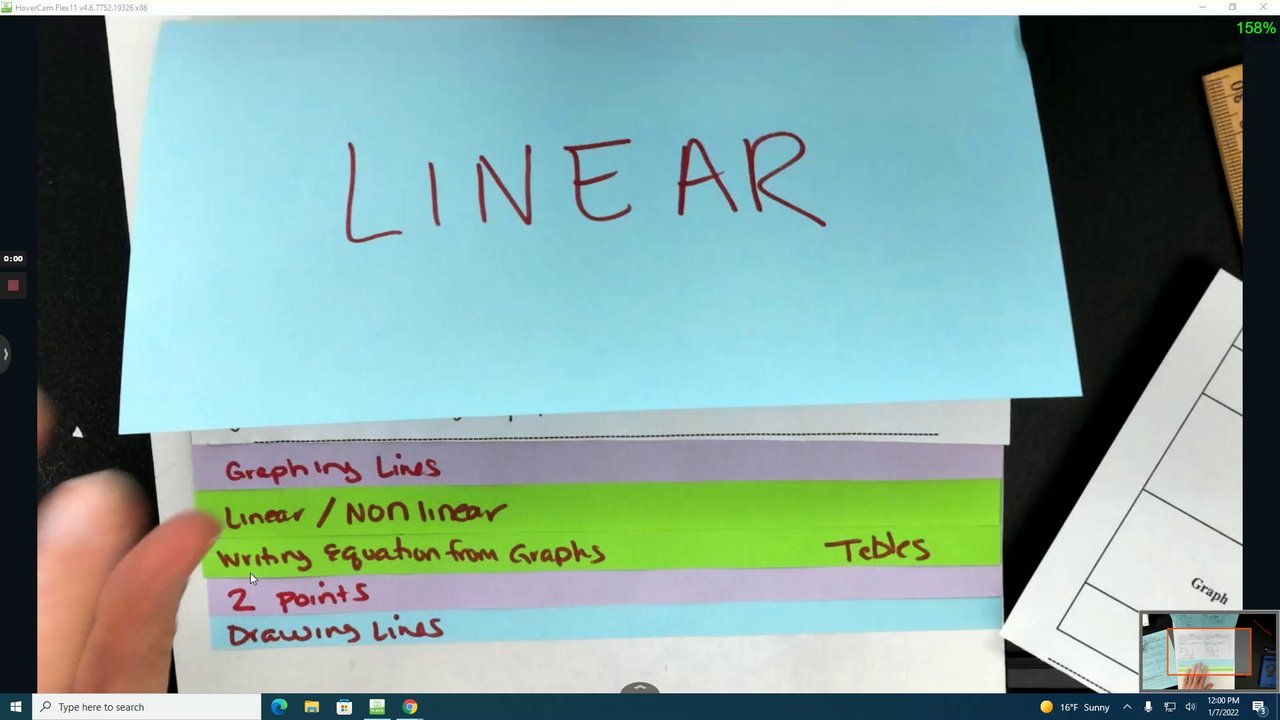 HoverCam Flex11 v4.6.7752.19326 x86
158%
LINEAR
0:00
Graphing Lines
Linear / Nonlinear
Writing Equation from Graphs Tables
2 points
Drawing Lines
Graph
Type here to search
16°F Sunny
12:00 PM
1/7/2022